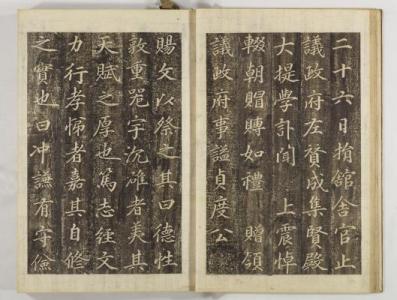 二十六日捐館舍官止
議政府左賛成集賢殿
大提學訃聞 上震悼
輟朝賵賻如禮 贈領
議政府事謚貞度公
賜文以祭之其曰德性
敦重器宇沉雄者美其
天賦之厚也篤志経文
力行孝悌者嘉其自修
之實也曰冲謙有守儉